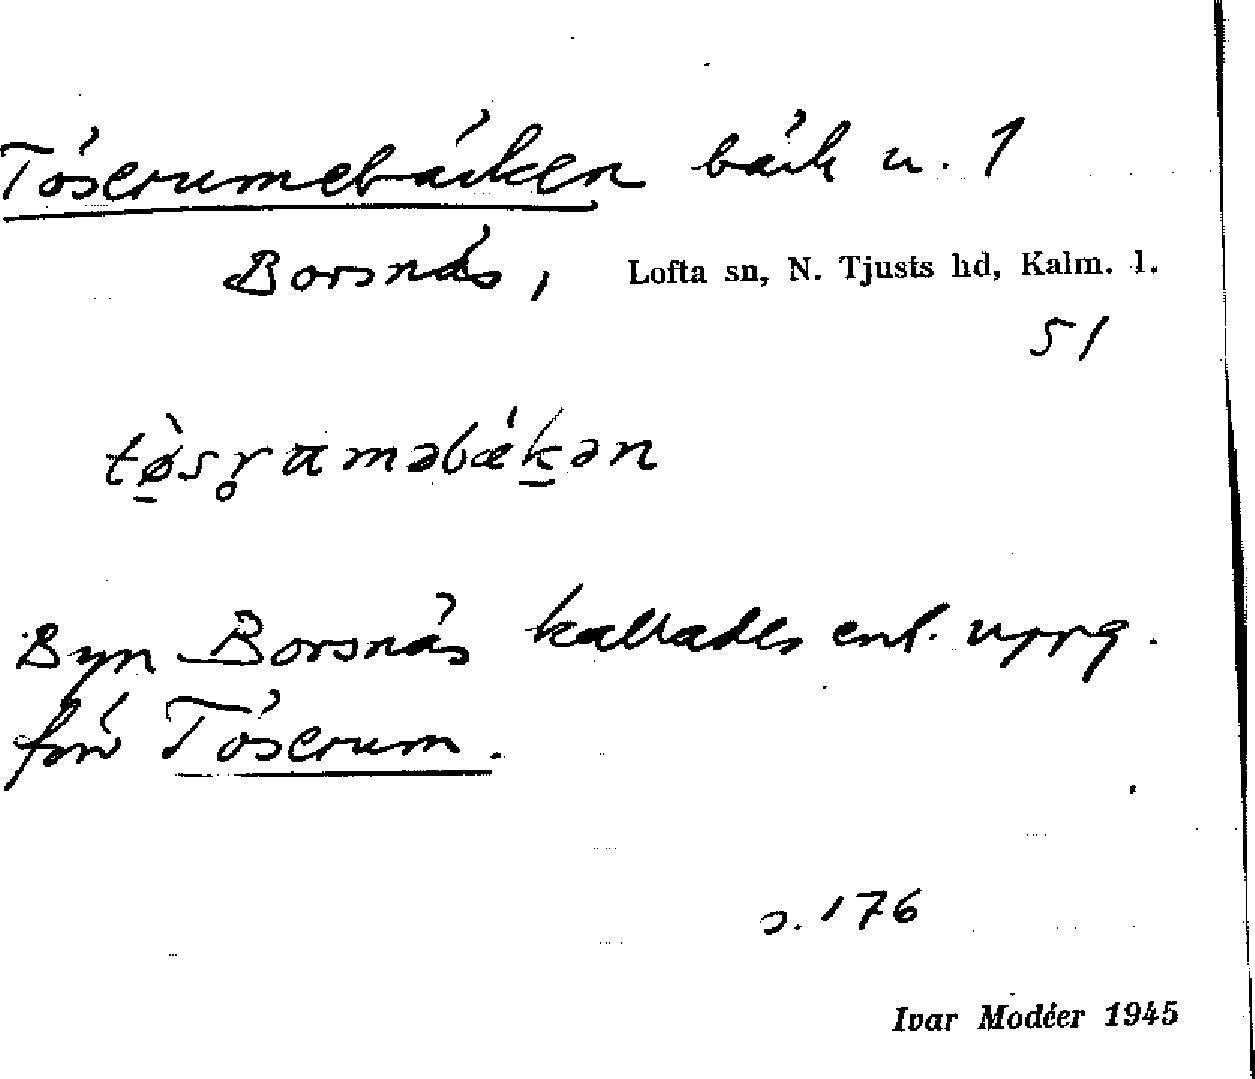 Töserumebäcken bäck u. 1
Borsnäs, Lofta sn, N. Tjusts hd, Kalm. l.
51
tø̀sr̥aməbǽkən
Byn Borsnäs kallades enl. uppg.
förr Töserum.
s. 176
Ivar Modéer 1945